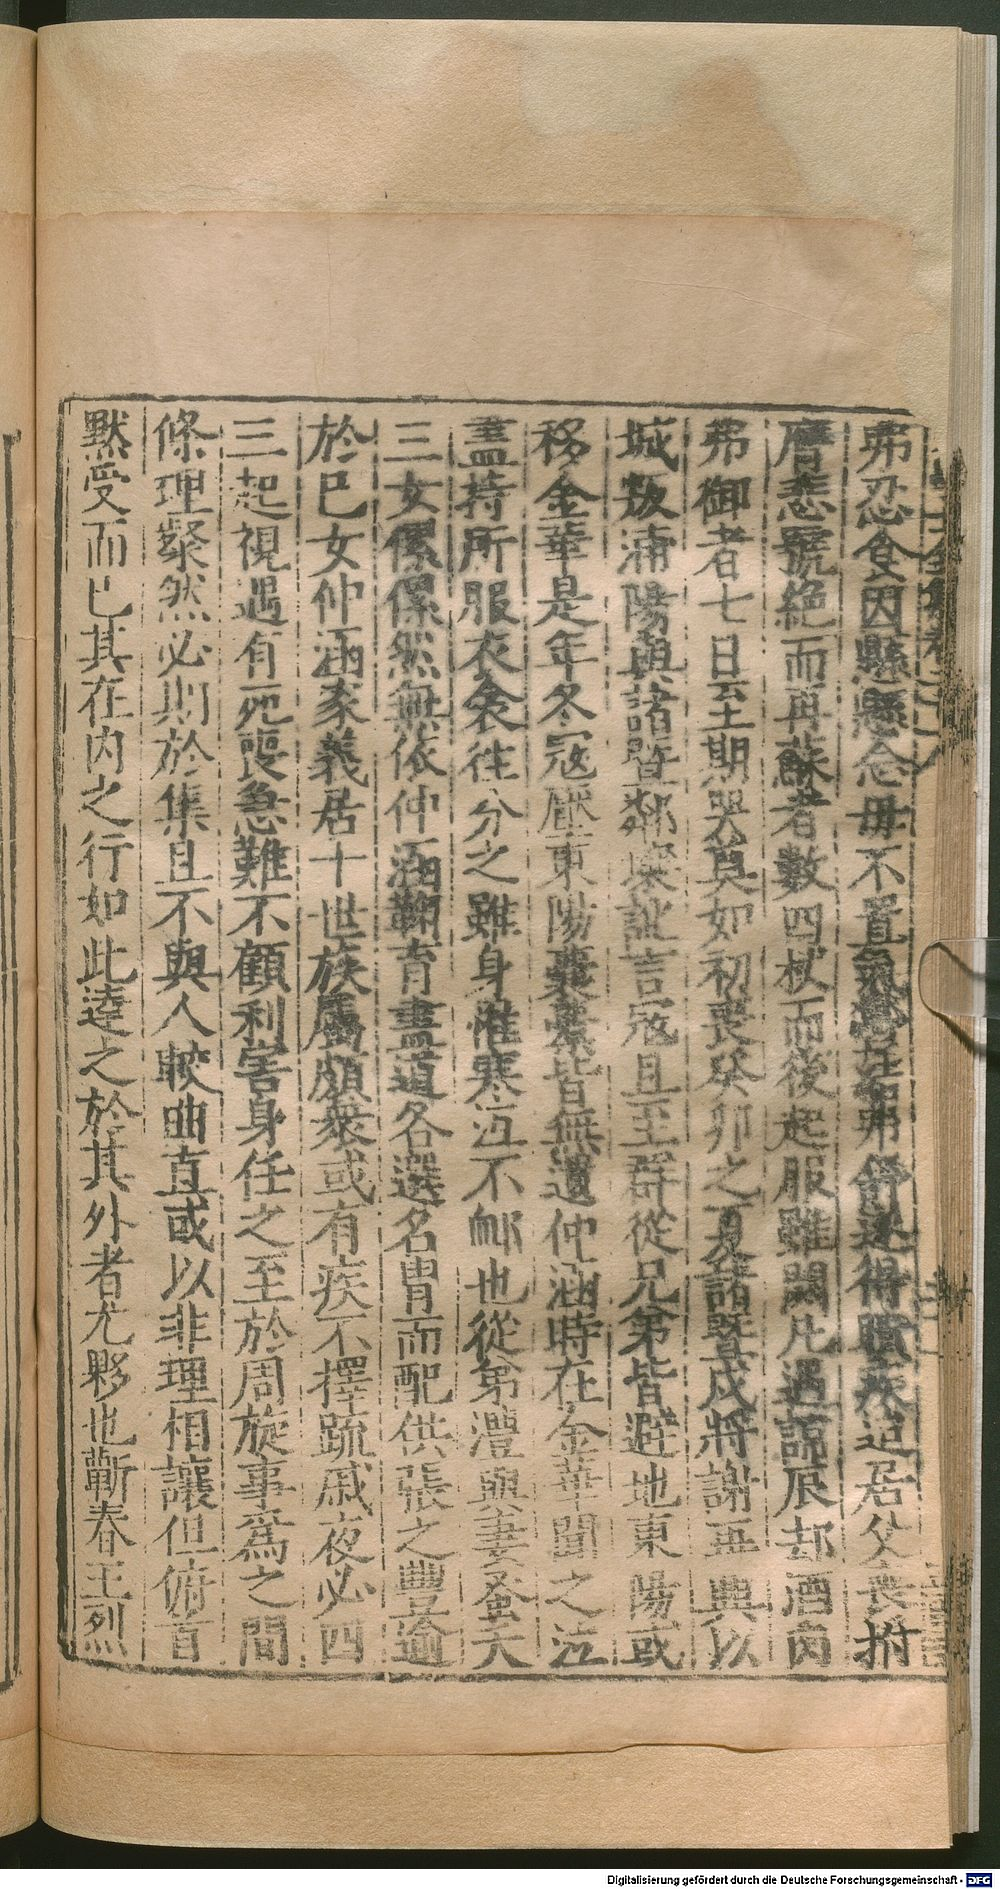 弗忍食因懸懸念母不置氣鬱弗舒遂得瞶疾迨居父喪拊
膺悲號絶而再蘇者數四杖而後起服雖闋凡遇諱辰却酒肉
弗御者七日至期哭奠如初喪癸卯之夏諸曁戍將謝再興以
城叛浦陽與諸曁鄰壤訛言寇且至群從兄弟皆避地東陽或
移金華是年冬寇壓東陽囊橐皆無遺仲涵時在金華聞之泣
盡持所服衣衾徃分之雖身罹寒沍不䘏也從弟澧與妻蚤夭
三女傫傫然無依仲涵鞠育盡道各選名胄而配供張之豐逾
於巳女仲涵家義居十世族屬頗衆或有疾不擇疏戚夜必四
三起視遇有死喪急難不顧利害身任之至於周旋事爲之間
條理粲然必期於集且不與人較曲直或以非理相讓但俯首
黙受而已其在内之行如此達之於其外者尤夥也蘄春王烈
Digitalisierung gefördert durch die Deutsche Forschungsgemeinschaft - DFG